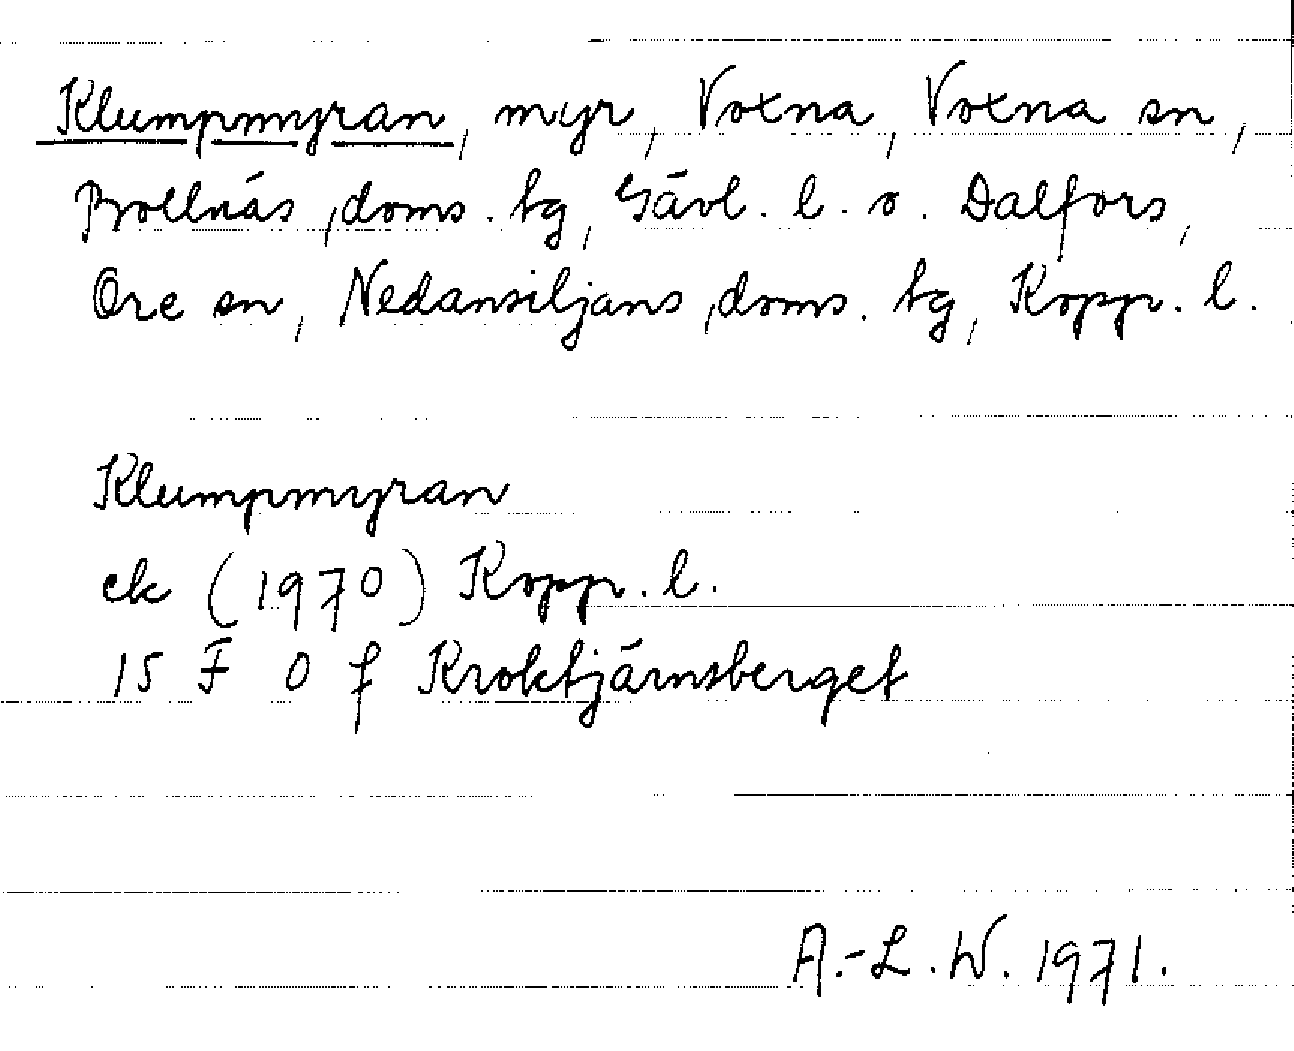 Klumpmyran, myr, Voxna, Voxna sn,
Bollnäs, doms. tg, Gävl. l. o. Dalfors,
Ore sn, Nedansiljans, doms. tg, Kopp. l.
Klumpmyran
ek (1970) Kopp. l.
15 F 0 f Kroktjärnsberget
A.-L. W. 1971.